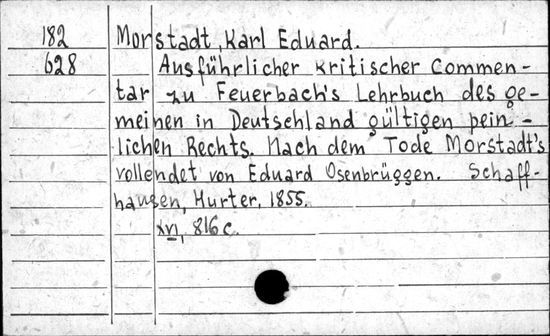 182 Morstadt, Karl Eduard.
628 Ausführlicher kritischer Commen-
tar zu Feuerbach's Lehrbuch des ge-
meinen in Deutschland gültigen pein-
lichen Rechts. Nach dem Tode Morstadt's
vollendet von Eduard Osenbrüggen. Schaff-
hausen, Hurter, 1855.
XVI, 816 c.